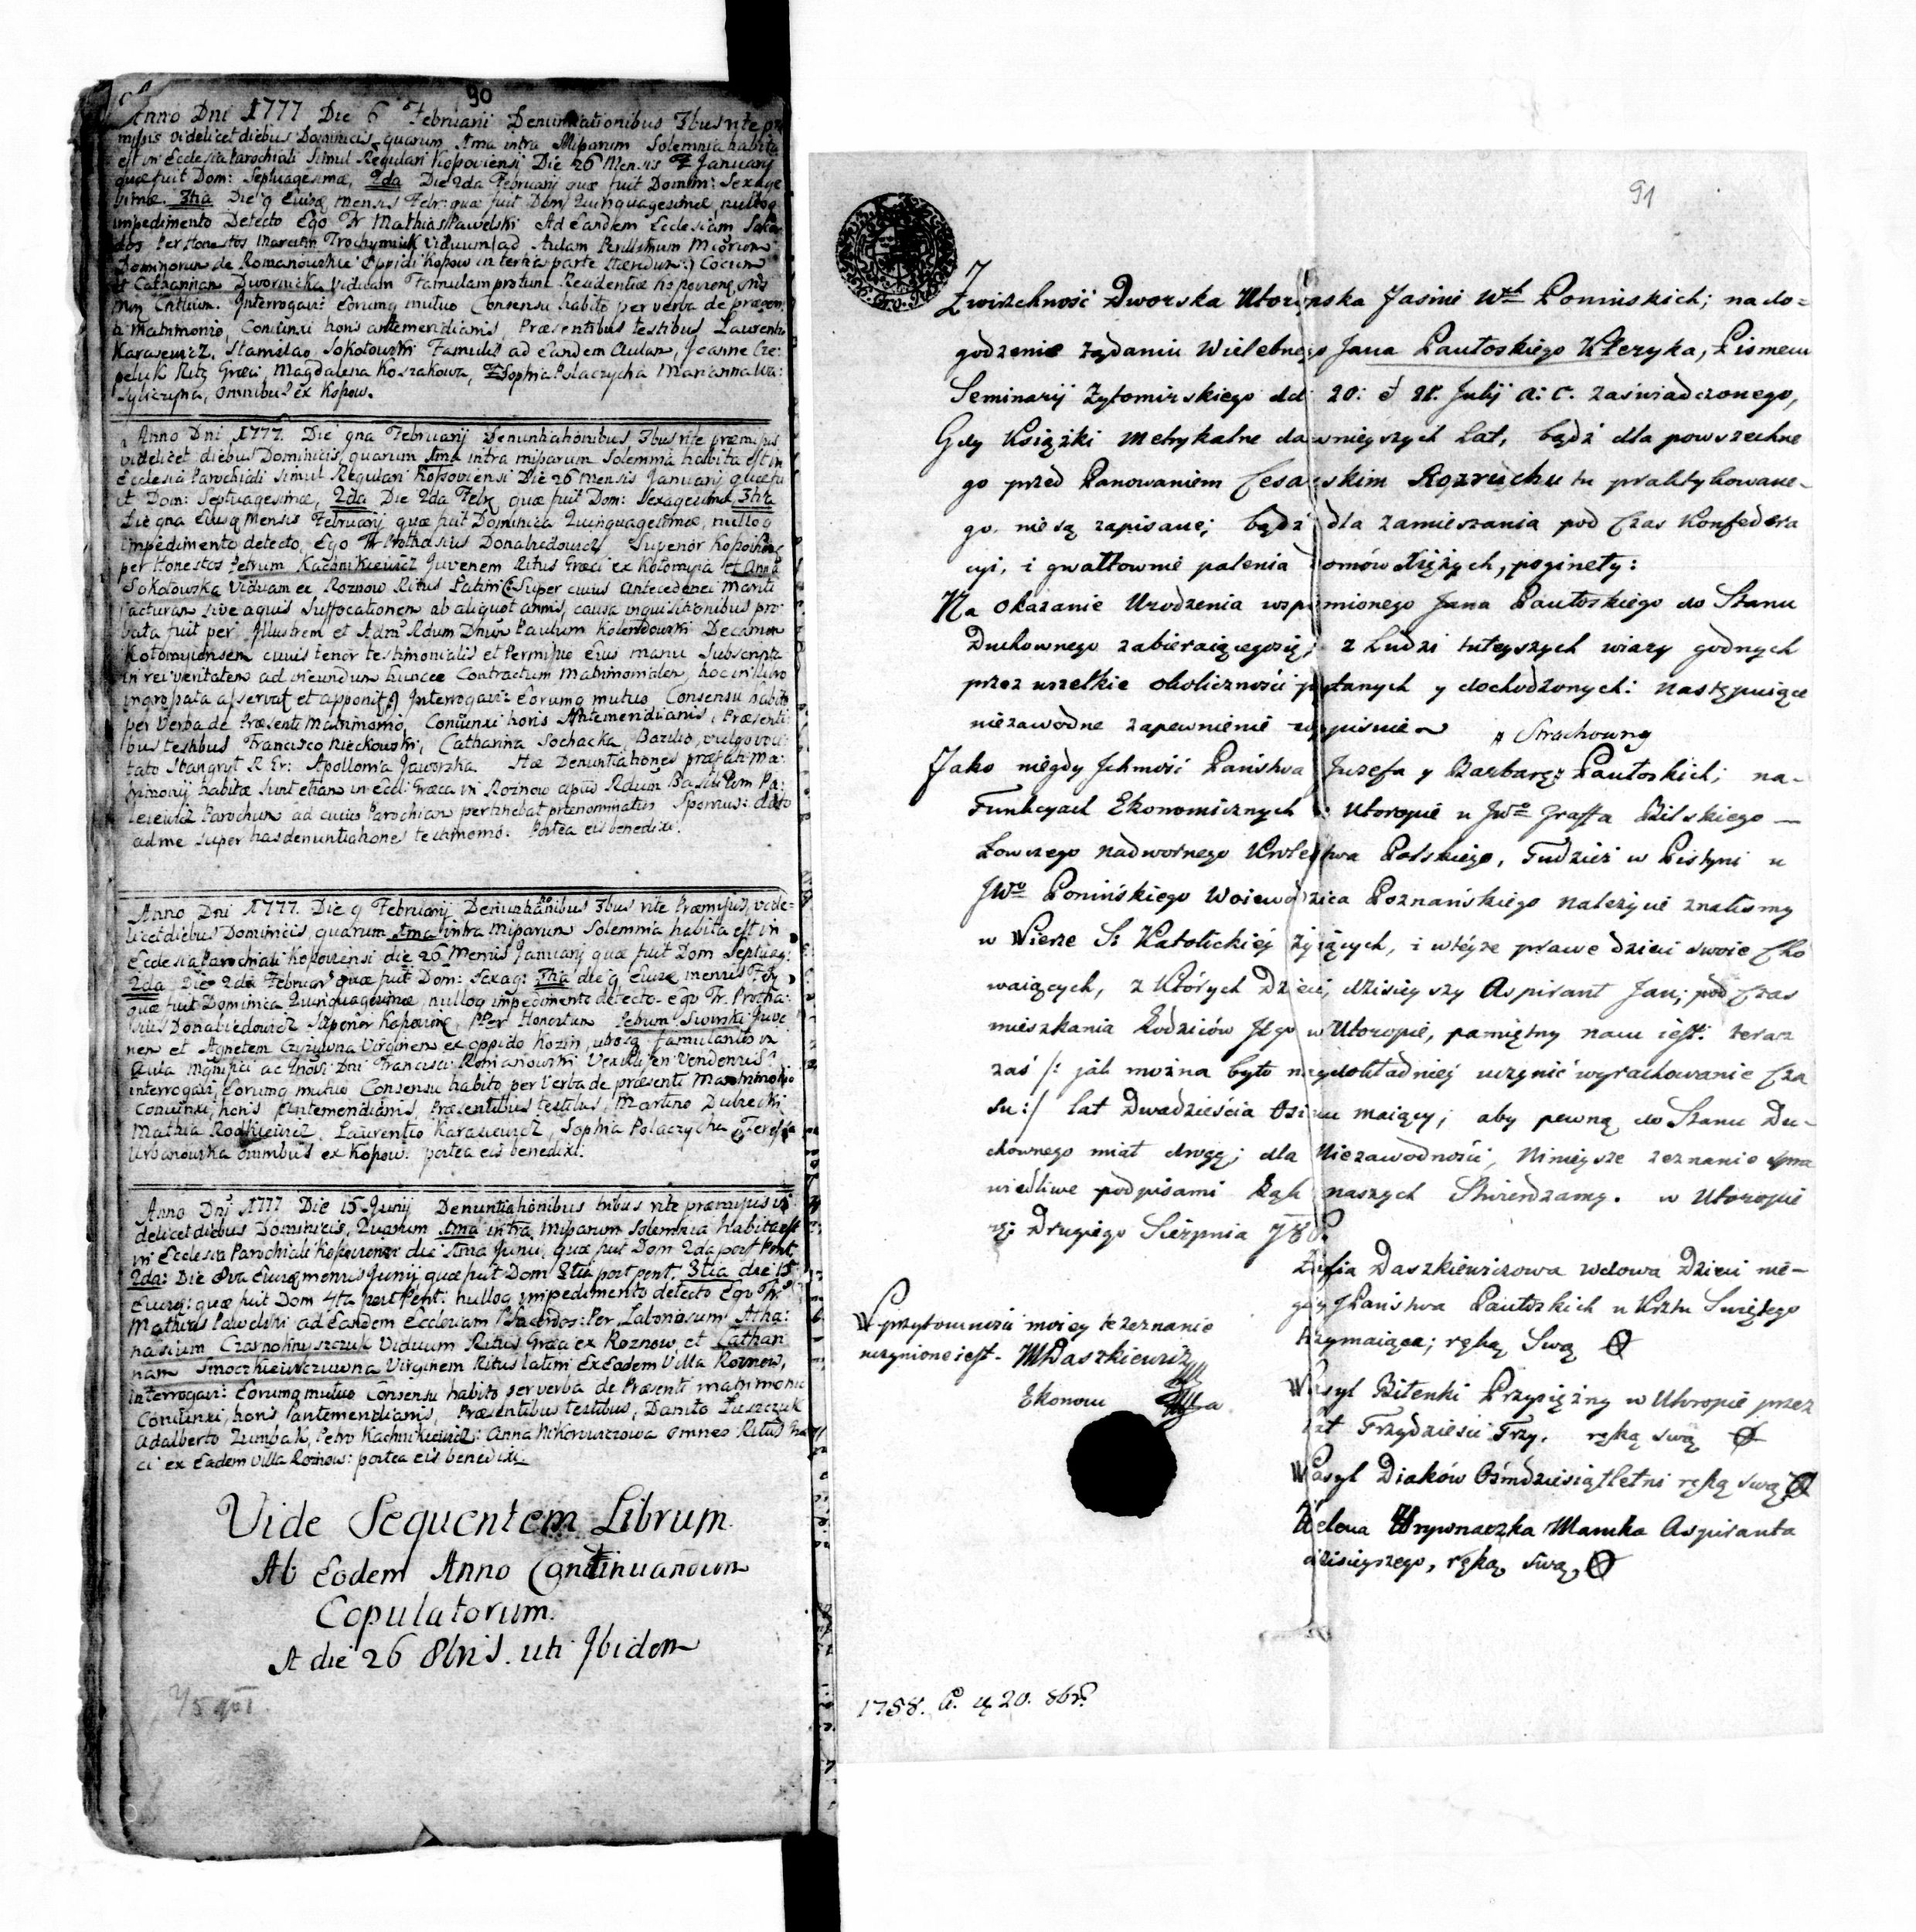 90
Anno Dni 1777 Die 6 Februarii Denuntiationibus 3bus rite præ
missis videlicet diebus Dominicis quarum 1ma intra Missarum Solemnia habita
est in Ecclesia Parochiali simul Regulari Kossoviensi Die 26 Mensis Januarij
quæ fuit Dom: Septuagesimæ, 2da Die 2da Februarij quæ fuit Domin: Sexage
simæ. 3tia Die 9 Eiusq mensis Febr: quæ fuit Dom Quinquagesimæ, nulloq
impedimento Detecto Ego Fr Mathias Pawelski Ad Eandem Ecclesiam Sacer
dos Per Honestos Marcum Trochymiuk Viduum ad Aulam
Dominorum de Romanowskie Oppidi Kossow in tertia parte Hæredum Cocum
et Catharinam Dwornicka Viduam Famulam pro tunc Residentiæ Kossoviensis
Interrogavi: Eorumq mutuo Consensu habito per verba de præsen
ti matrimonio, Coniunxi horis antemeridianis, Præsentibus testibus Laurentio
Karasewicz, Stanislao Sokołowski Famulis ad Eandem Aulam, Joanne Cze:
peluk Ritg Græci, Magdalena Koszakowa, Sophia Polaczycha Marianna Wa:
syliczyna, omnibus ex Kossow.
Anno Dni 1777. Die 9na Februarij Denuntiationibus 3bus rite præmissis
videlicet diebus Dominicis quarum 1ma intra missarum Solemnia habita est in
Ecclesia Parochiali simul Regulari Kossoviensi Die 26 Mensis Januarij quæ fu
it Dom: Septuagesimæ, 2da Die 2da Febr quæ fuit Dom: Sexagesimæ 3tia
Die 9na Eiusq Mensis Februarij quæ fuit Dominica Quinquagesimæ, nulloq
impedimento detecto, Ego Fr Prothasius Donabidowicz Superior Kossoviens
per Honestos Petrum Kachnikiewicz Juvenem Ritus Græci ex Kołomyia et Anna
Sokołowska Viduam ex Roznow Ritus Latini Super cuius antecedenci Mariti
iacturam sive aquis suffocationem ab aliquot annis, causa inquisitionibus pro
bata fuit per Illustrem et Adm Rdum Dnum Paulum Kolendowski Decanum
Kołomyiensem cuius tenor testimonialis et Permissio Eius manu subscripta
in rei veritatem ad ineundum huncce Contractum Matrimonialem, hoc in libro
ingrossata asservat et apponit Interrogavi: Eorumq mutuo Consensu habito
per Verba de Præsenti Matrimonio, Coniunxi horis Antemeridianis, Præsenti
bus testibus Francisco Rieckowski, Catharina Sochacka, Bazilio, vulgo voci
tato Sbangryt R Gr: Apollonia Jaworska. Hæ Denuntiationes præfati Ma:
trimonij habitæ sunt etiam in Eccl: Græca in Roznow apud Rdum Basilium Pa:
lewicz Parochum ad cuius Parochiam pertinebat prænominatus Sponsus: dato
ad me super has denuntiationes testimonio. Postea eis benedixi.
Anno Dni 1777. Die 9 Februarij Denuntiationibus 3bus rite Præmissis, vide=
licet diebus Dominicis, quarum 1ma intra Missarum Solemnia habita est in
Ecclesia Parochiali Kossoviensi die 26 Mensis Januarij quæ fuit Dom Septuag:
2da Die 2da Februar quæ fuit Dom: Sexag: 3tia die 9 Eiusq mensis Febr
quæ fuit Dominica Quinquagesimæ, nulloq impedimento detecto- Ego Fr. Protha:
sius Donabiedowicz Superior Kossoviens, Per Honestum Petrum Swirski Juve
nem et Agnetem Virginem ex oppido Kozin, utosq famulantes in
Aula Mgnifici ac Dni Francisci Romanowski
interrogavi, Eorumq mutuo Consensu habito per Verba de præsenti Matrimonio
Coniunxi, horis Antemeridianis, Præsentibus testibus, Martino Dubecki
Mathia Rodkiewicz, Laurentio Karasiewicz, Sophia Polaczycha Teresia
Urbanowska omnibus ex Kossow: postea eis benedixi.
Anno Dni 1777 Die 15 Junij Denuntiationibus tribus rite præmissis vi
delicet diebus Dominicis, Quarum 1ma intra Missarum Solemnia habita est
in Ecclesia Parochiali Kossoviensi die 1ma Junij quæ fuit Dom 2da post Pent,
2da: Die 8va Eiusq mensis Junij quæ fuit Dom 3tia post pent. 3tia die 15
Eiusq: quæ fuit Dom 4ta post Pent: nulloq impedimento detecto Ego Fr
Mathias Pawelski ad Eandem Ecclesiam Sacerdos: Per, Laboriosum Atha:
nasium Czarnohuszczuk Viduum Ritus Græci ex Roznow, et Cathari
nam Smoczkiewiczuwna Virginem Ritus latini Ex Eadem Villa Roznow,
interrogavi: Eorumq mutuo Consensu habito per verba de Præsenti matrimonio
Coniunxi, horis Pantemeridianis, Præsentibus testibus, Danito Łuszczuk
Adalberto Zumbak, Petro Kachnikiewicz: Anna Nikorowiczowa omnes Ritus Græ
ci ex Eadem Villa Roznow: postea eis benedixi.
Vide Sequentem Librum
Ab Eodem Anno Continuandum
Copulatorum.
A die 26 8bris. uti Ibidem
91
Zwirzchność Dworska Utoropska Jasnie Wch Ponińskich; na do=
godzenie rządaniu Wielebnego Jana Pautoskiego Kleryka, Pismem
Seminarij Zytomirskiego dd 20: et 21. Julij a: c. zaświadczonego,
Gdy Książki Metrykalne dawnieyszych Lat, bądź dla powszechne
go przed Panowaniem Cesarskim Rozruchu tu praktykowane-
go nie są zapisane; bądź dla zamieszania pod Czas Konfedera
cyi, i gwałtownie palenia Domów Xiężych, poginęły:
Na Okazanie Urodzenia wspomnionego Jana Pautoskiego do Stanu
Duchownego zabieraiącegosię; z Ludzi tuteyszych wiary godnych
przez wszelkie okoliczności pytanych y dochodzonych: następuiące
niezawodne zapewnienie wypisuie „ Strachowny
Jako niegdy Jchmość Państwa Juzefa y Barbarę Pautoskich; na-
Funkcyach Ekonomicznych w: Utoropie u JWo Graffa Bilskiego —
Łowczego nadwornego Krolestwa Polskiego, Tudzież w Pistyni u
JWo Ponińskiego Woiewodzica Poznańskiego należycie znaliśmy
w Wierze S: Katolickiey żyiących, i wteyże prawe dzieci swoie cho
waiących, z Których Dzieci, dzisieyszy Aspirant Jan; pod Czas
mieszkania Rodziców Jego w Utoropie, pamiętny nam iest: teraz
zaś /: jak można było naydokładniey uczynić wyrachowanie Cza
su :/ lat Dwadzieścia Ośm maiący; aby pewną do Stanu Du-
chownego miał drogę; dla Niezawodności, Ninieysze zeznanie spra
wiedliwe podpisami Rąk naszych Stwierdzamy. w Utoropie
Drugiego Sierpnia
Zofia Daszkiewiczowa wdowa Dzieci nie-
gdy JPaństwa Pautoskich u Krztu Swiętego
trzymaiąca; ręką Swą
Wasyl Bilenki Przysiężny w Utoropie przez
lat Trzydzieści Trzy. ręką swą
Wasyl Diaków Ośmdziesiątletni ręką swą
Helena Hrywnaczka Mamka Aspiranta
dzisieyszego, ręką swą
W przytomności moiey te zeznanie
uczynione iest. MDaszkiewicz
Ekonom
1788. A. 20. 8br